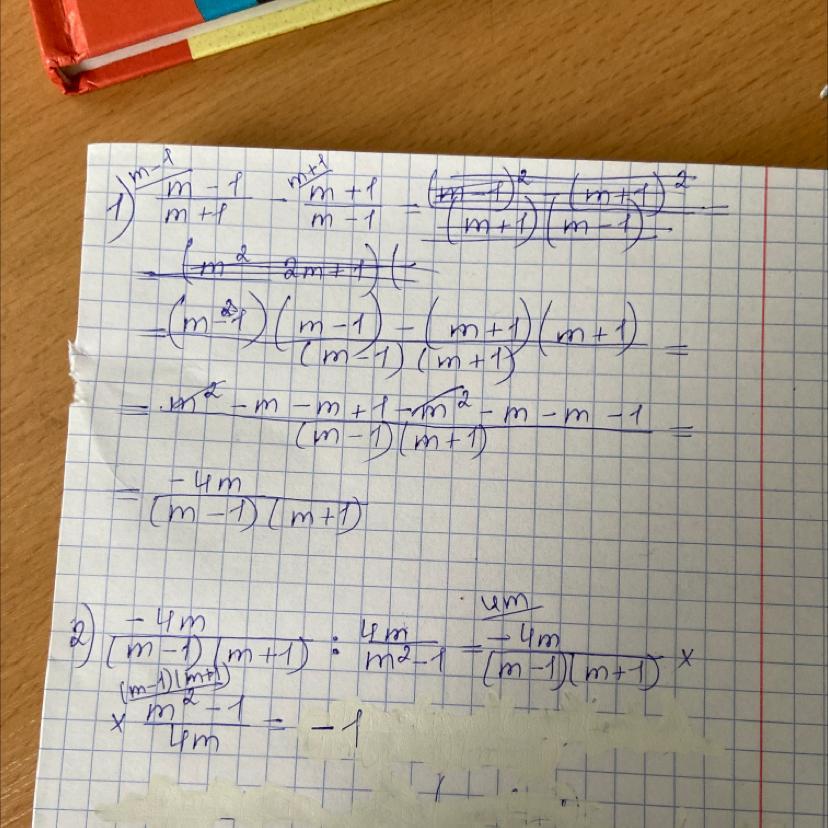 1) m-1 / (m-1)/(m+1) - m+1 / (m+1)/(m-1) = ((m-1)² - (m+1)²)/((m+1)(m-1)) =
= (m² 2m+1)(
= ((m-1)(m-1) - (m+1)(m+1))/((m-1)(m+1)) =
= (m² - m - m + 1 - m² - m - m - 1)/((m-1)(m+1)) =
= (-4m)/((m-1)(m+1))
2) (-4m)/((m-1)(m+1)) : (4m)/(m²-1) = 4m / (-4m)/((m-1)(m+1)) ×
(m-1)(m+1) /
× (m²-1)/(4m) = -1